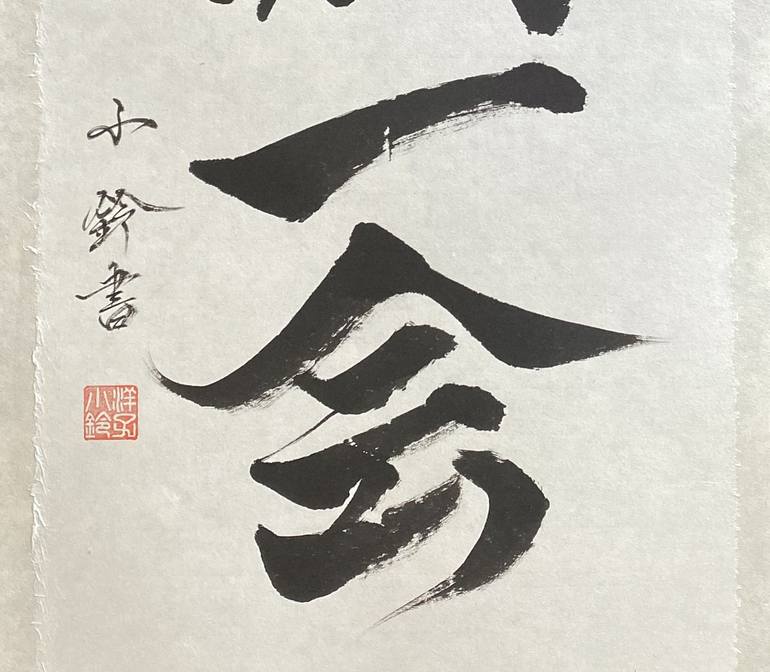 一会
小鈴書
洋子
小鈴